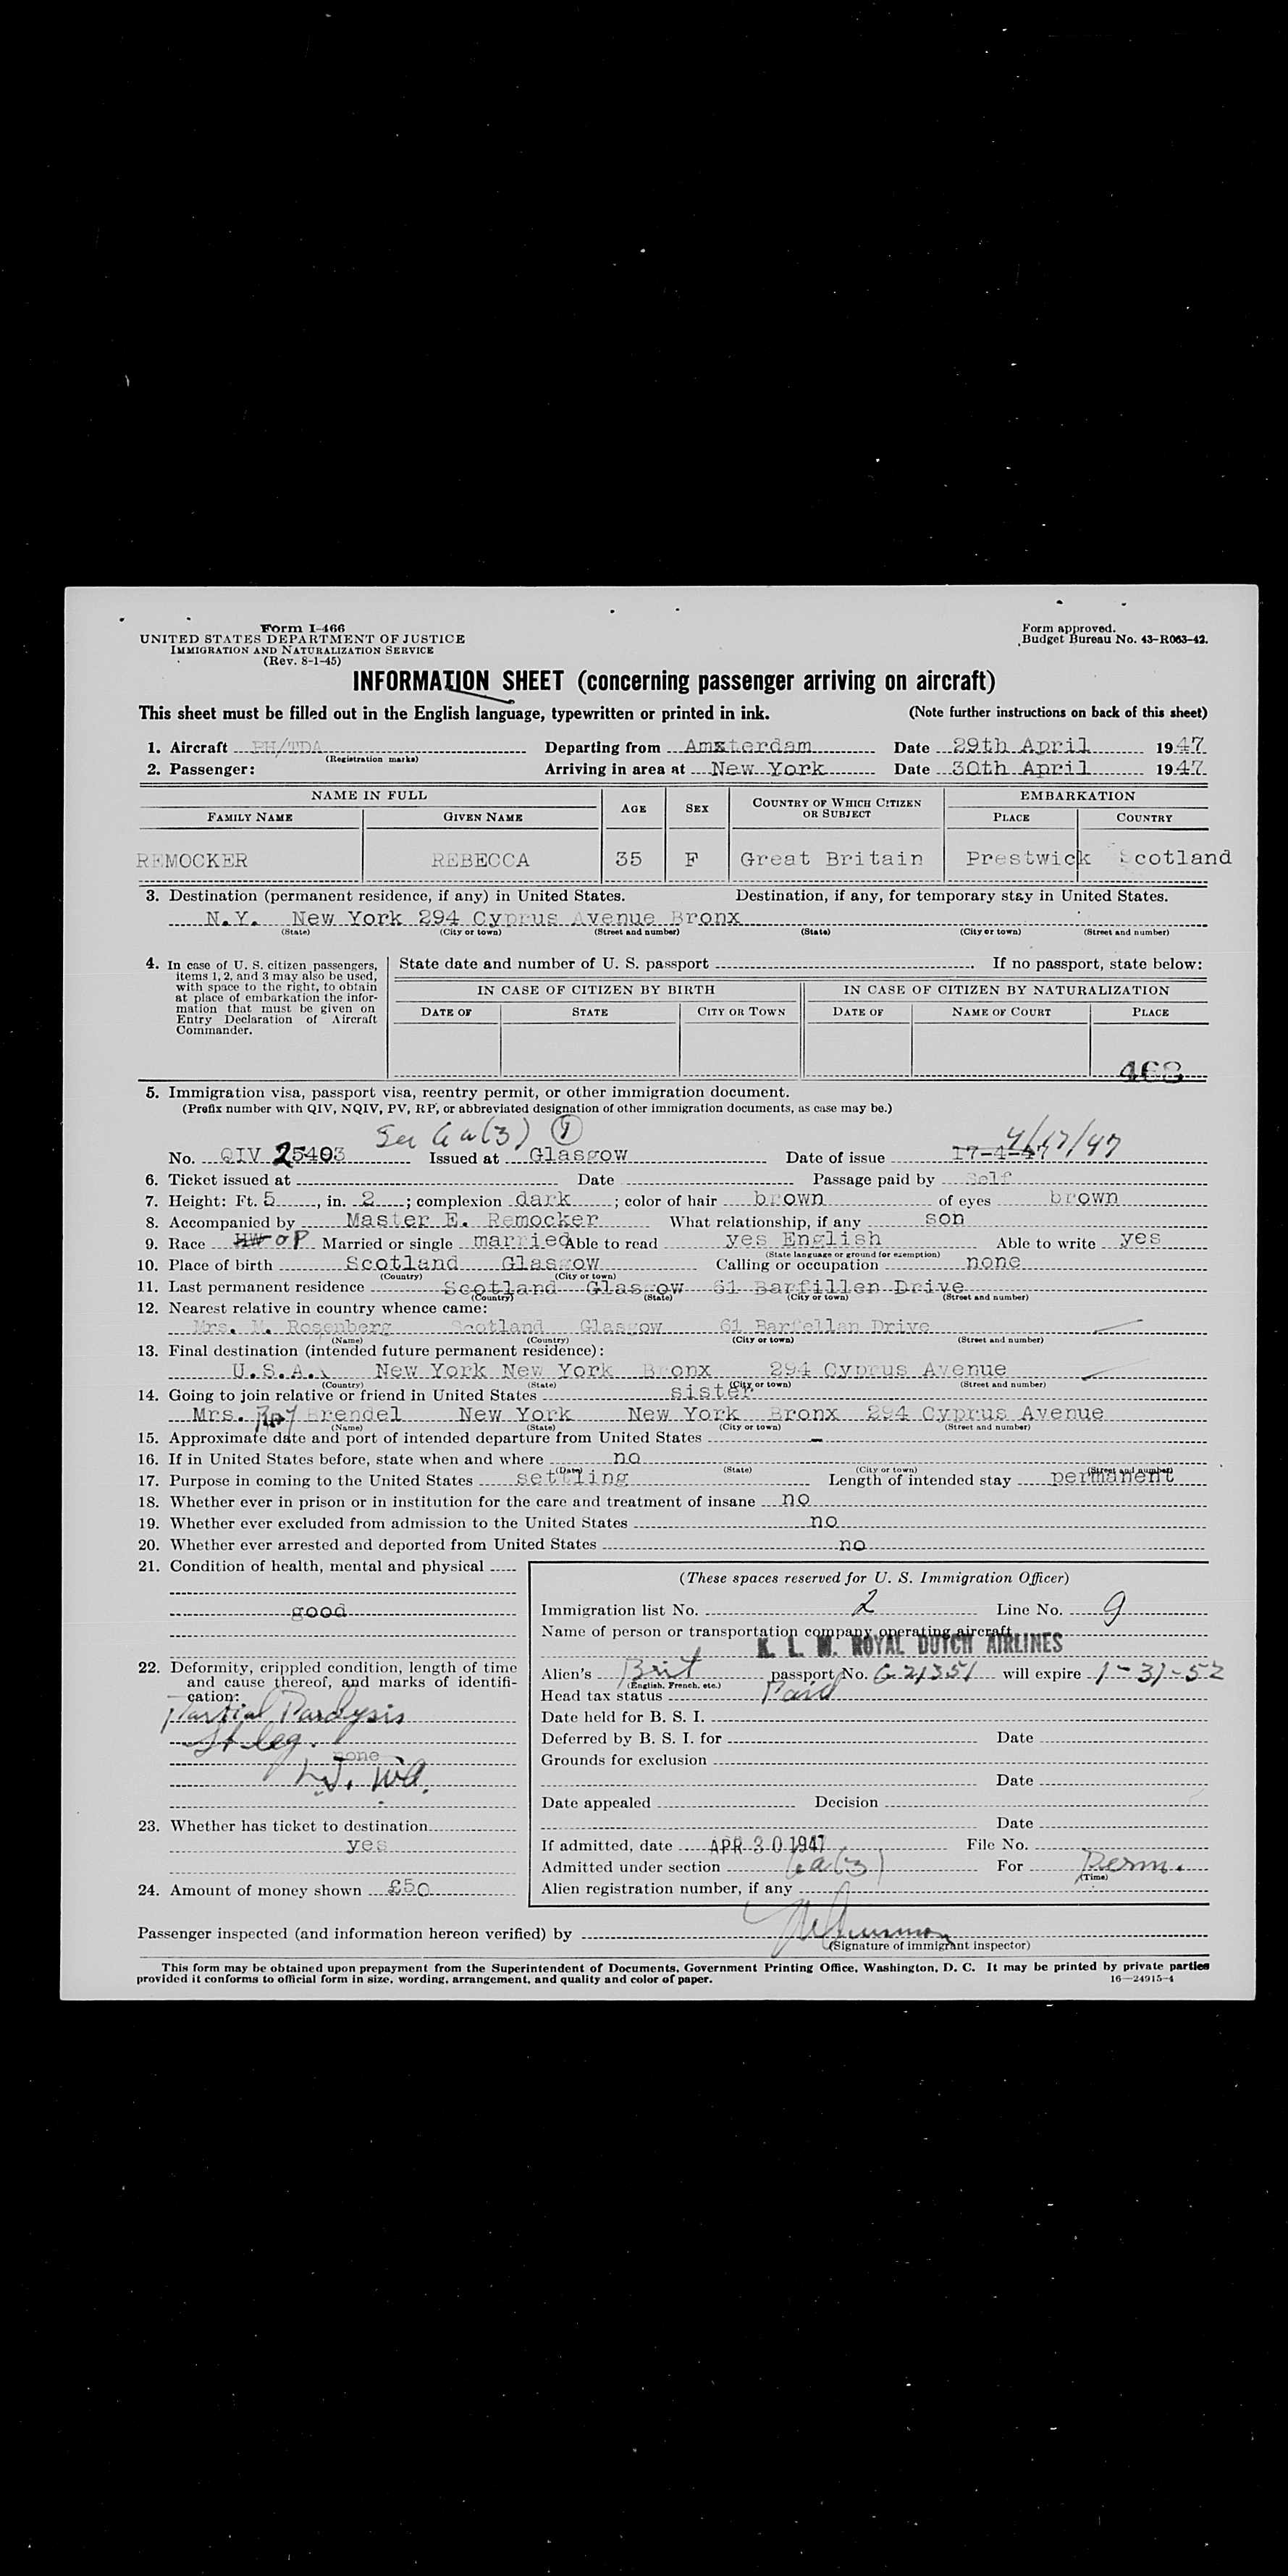 Form I-466
UNITED STATES DEPARTMENT OF JUSTICE
IMMIGRATION AND NATURALIZATION SERVICE
(Rev. 8-1-45)
Form approved.
Budget Bureau No. 43-R063-42.
INFORMATION SHEET (concerning passenger arriving on aircraft)
This sheet must be filled out in the English language, typewritten or printed in ink. (Note further instructions on back of this sheet)
1. Aircraft PH/TDA Departing from Amsterdam Date 29th April 1947
(Registration marks)
2. Passenger: Arriving in area at New York Date 30th April 1947
NAME IN FULL AGE SEX COUNTRY OF WHICH CITIZEN OR SUBJECT EMBARKATION
FAMILY NAME GIVEN NAME PLACE COUNTRY
REMOCKER REBECCA 35 F Great Britain Prestwick Scotland
3. Destination (permanent residence, if any) in United States. Destination, if any, for temporary stay in United States.
N.Y. New York 294 Cyprus Avenue Bronx
(State) (City or town) (Street and number) (State) (City or town) (Street and number)
4. In case of U. S. citizen passengers, items 1, 2, and 3 may also be used, with space to the right, to obtain at place of embarkation the information that must be given on Entry Declaration of Aircraft Commander.
State date and number of U. S. passport If no passport, state below:
IN CASE OF CITIZEN BY BIRTH IN CASE OF CITIZEN BY NATURALIZATION
DATE OF STATE CITY OR TOWN DATE OF NAME OF COURT PLACE
468
5. Immigration visa, passport visa, reentry permit, or other immigration document.
(Prefix number with QIV, NQIV, PV, RP, or abbreviated designation of other immigration documents, as case may be.)
Sec 6a(3) 4/17/47
No. QIV 25403 Issued at Glasgow Date of issue 17-4-47
6. Ticket issued at Date Passage paid by Self
7. Height: Ft. 5, in. 2; complexion dark; color of hair brown of eyes brown
8. Accompanied by Master E. Remocker What relationship, if any son
9. Race HW OP Married or single married Able to read yes English Able to write yes
(State language or ground for exemption)
10. Place of birth Scotland Glasgow Calling or occupation none
(Country) (City or town)
11. Last permanent residence Scotland Glasgow 61 Barfillen Drive
(Country) (State) (City or town) (Street and number)
12. Nearest relative in country whence came:
Mrs. M. Rosenberg Scotland Glasgow 61 Barfellan Drive
(Name) (Country) (City or town) (Street and number)
13. Final destination (intended future permanent residence):
U.S.A. New York New York Bronx 294 Cyprus Avenue
(Country) (State) (City or town) (Street and number)
14. Going to join relative or friend in United States sister
Mrs. Brendel New York New York Bronx 294 Cyprus Avenue
(Name) (State) (City or town) (Street and number)
15. Approximate date and port of intended departure from United States -
16. If in United States before, state when and where no
(Date) (State) (City or town) (Street and number)
17. Purpose in coming to the United States settling Length of intended stay permanent
18. Whether ever in prison or in institution for the care and treatment of insane no
19. Whether ever excluded from admission to the United States no
20. Whether ever arrested and deported from United States no
21. Condition of health, mental and physical
good
22. Deformity, crippled condition, length of time and cause thereof, and marks of identification:
Partial Paralysis
leg.
none
23. Whether has ticket to destination
yes
24. Amount of money shown £50
(These spaces reserved for U. S. Immigration Officer)
Immigration list No. 2 Line No. 9
Name of person or transportation company operating aircraft
K. L. M. ROYAL DUTCH AIRLINES
Alien's Brit passport No. G 21351 will expire 1-31-52
(English, French, etc.)
Head tax status Paid
Date held for B. S. I.
Deferred by B. S. I. for Date
Grounds for exclusion
Date
Date appealed Decision
Date
If admitted, date APR 30 1947 File No.
Admitted under section 6a(3) For Perm.
(Time)
Alien registration number, if any
Passenger inspected (and information hereon verified) by
(Signature of immigrant inspector)
This form may be obtained upon prepayment from the Superintendent of Documents, Government Printing Office, Washington, D. C. It may be printed by private parties
provided it conforms to official form in size, wording, arrangement, and quality and color of paper. 16—24915-4